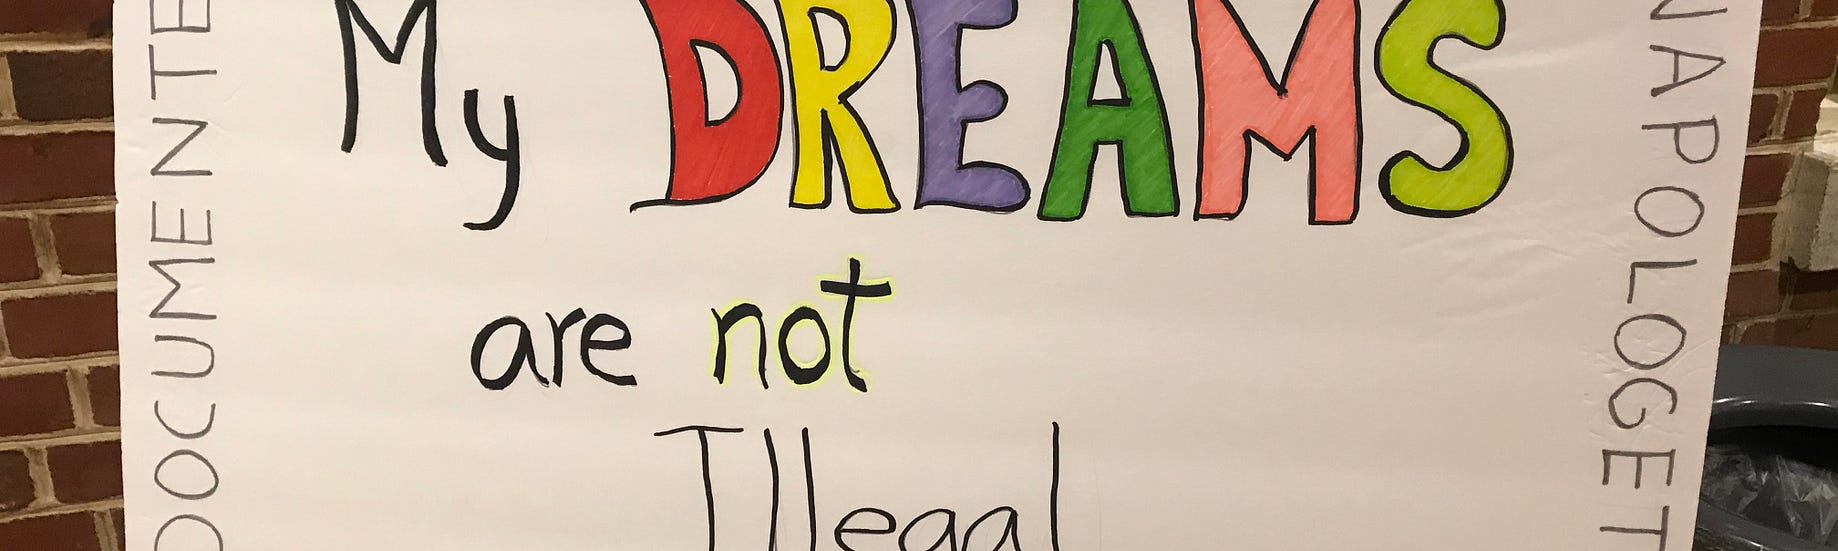 My DREAMS
are not
Illegal
DOCUMENTE
NAPOLOGET